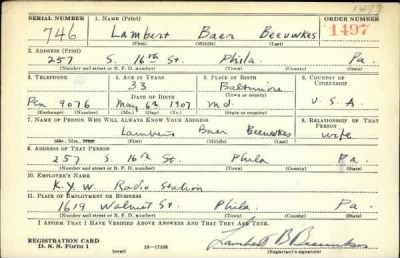 1497
SERIAL NUMBER 1. NAME (Print) ORDER NUMBER
746 Lambert Baer Beeuwkes 1497
(First) (Middle) (Last)
2. ADDRESS (Print)
257 S. 16th St. Phila Pa.
(Number and street or R. F. D. number) (Town) (County) (State)
3. TELEPHONE 4. AGE IN YEARS 5. PLACE OF BIRTH 6. COUNTRY OF CITIZENSHIP
33 Baltimore
DATE OF BIRTH (Town or county)
Pen 9076 May 6th 1907 Md. U.S.A.
(Exchange) (Number) (Mo.) (Day) (Yr.) (State or country)
7. NAME OF PERSON WHO WILL ALWAYS KNOW YOUR ADDRESS 8. RELATIONSHIP OF THAT PERSON
Lambert Baer Beeuwkes wife
(Mr., Mrs., Miss) (First) (Middle) (Last)
9. ADDRESS OF THAT PERSON
257 S. 16th St. Phila Pa.
(Number and street or R. F. D. number) (Town) (County) (State)
10. EMPLOYER'S NAME
K.Y.W. Radio Station
11. PLACE OF EMPLOYMENT OR BUSINESS
1619 Walnut St. Phila Pa.
(Number and street or R. F. D. number) (Town) (County) (State)
I AFFIRM THAT I HAVE VERIFIED ABOVE ANSWERS AND THAT THEY ARE TRUE.
REGISTRATION CARD
D. S. S. Form 1 (over) 16-17105 Lambert B Beeuwkes
(Registrant's signature)